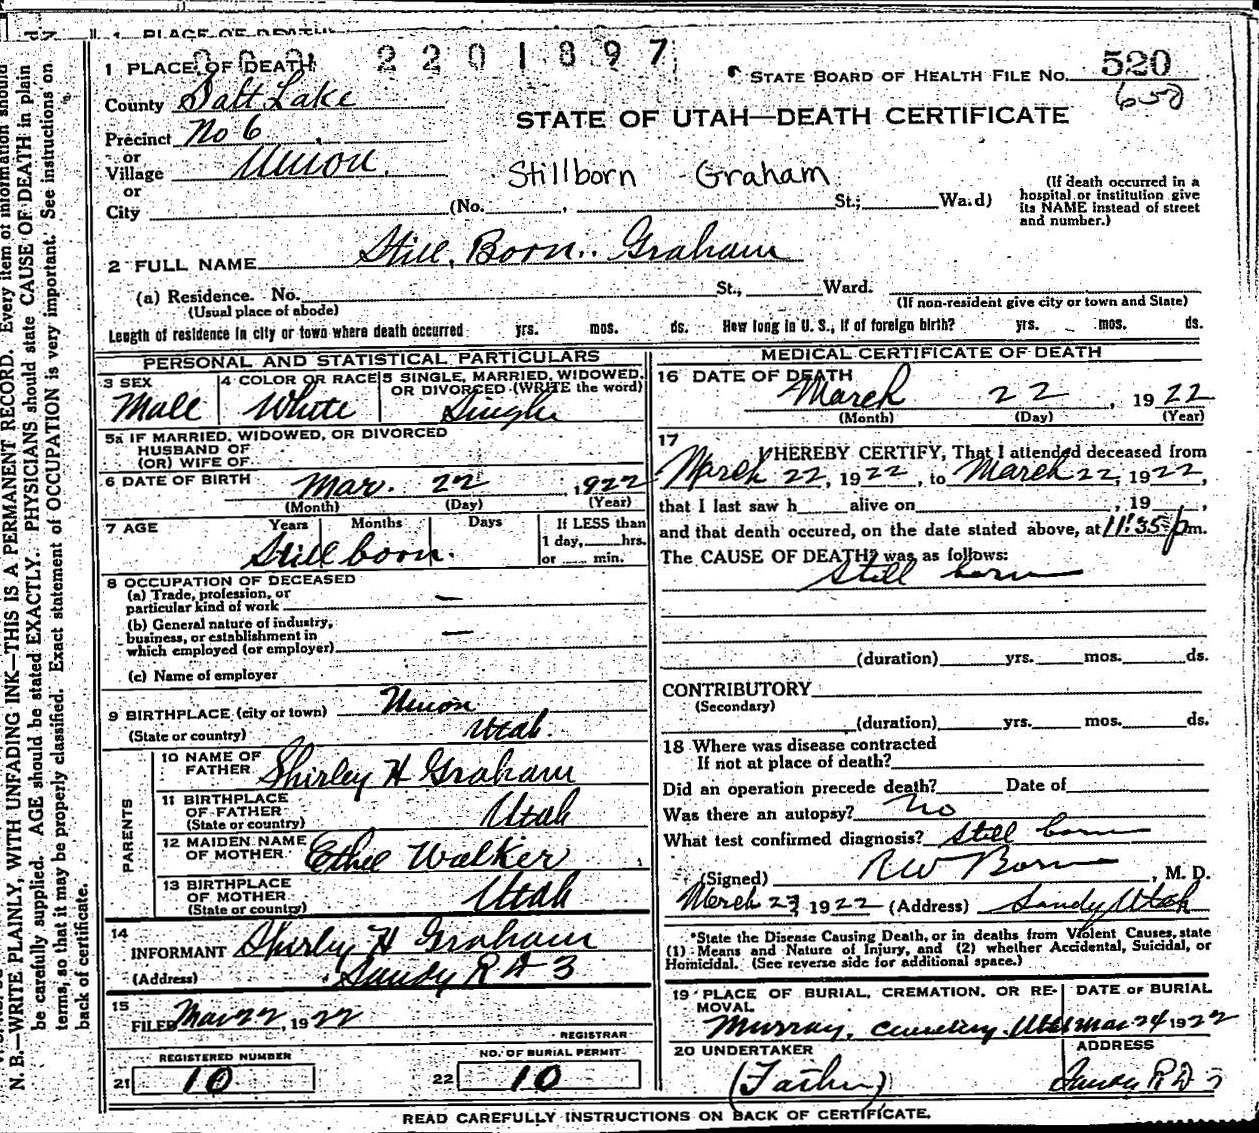 1 PLACE OF DEATH
2201897
STATE BOARD OF HEALTH FILE NO. 520
County Salt Lake
STATE OF UTAH—DEATH CERTIFICATE
Precinct No 6
or
Village Union
Stillborn Graham
or
City (No. , St.; Ward)
(If death occurred in a hospital or institution give its NAME instead of street and number.)
2 FULL NAME Still Born Graham
(a) Residence. No. St., Ward.
(Usual place of abode)
(If non-resident give city or town and State)
Length of residence in city or town where death occurred yrs. mos. ds. How long in U. S., if of foreign birth? yrs. mos. ds.
PERSONAL AND STATISTICAL PARTICULARS
3 SEX Male
4 COLOR OR RACE White
5 SINGLE, MARRIED, WIDOWED, OR DIVORCED (WRITE the word) Single
5a IF MARRIED, WIDOWED, OR DIVORCED
HUSBAND OF
(OR) WIFE OF
6 DATE OF BIRTH Mar. 22, 1922
(Month) (Day) (Year)
7 AGE Years Months Days If LESS than
1 day, hrs.
or min.
Still born.
8 OCCUPATION OF DECEASED
(a) Trade, profession, or
particular kind of work —
(b) General nature of industry,
business, or establishment in
which employed (or employer) —
(c) Name of employer
9 BIRTHPLACE (city or town) Union
(State or country) Utah.
PARENTS
10 NAME OF FATHER Shirley H Graham
11 BIRTHPLACE OF FATHER (State or country) Utah
12 MAIDEN NAME OF MOTHER Ethel Walker
13 BIRTHPLACE OF MOTHER (State or country) Utah
14
INFORMANT Shirley H Graham
(Address) Sandy R D 3
15
FILED Mar 22, 1922
REGISTRAR
REGISTERED NUMBER
21 10
NO. OF BURIAL PERMIT
22 10
MEDICAL CERTIFICATE OF DEATH
16 DATE OF DEATH
March 22, 1922
(Month) (Day) (Year)
17
I HEREBY CERTIFY, That I attended deceased from
March 22, 1922, to March 22, 1922,
that I last saw h alive on , 19 ,
and that death occured, on the date stated above, at 11:35 p m.
The CAUSE OF DEATH* was as follows:
Still born
(duration) yrs. mos. ds.
CONTRIBUTORY
(Secondary)
(duration) yrs. mos. ds.
18 Where was disease contracted
If not at place of death?
Did an operation precede death? Date of
Was there an autopsy? No
What test confirmed diagnosis? Still born
(Signed) , M. D.
March 23, 1922 (Address) Sandy Utah
*State the Disease Causing Death, or in deaths from Violent Causes, state
(1) Means and Nature of Injury, and (2) whether Accidental, Suicidal, or
Homicidal. (See reverse side for additional space.)
19 PLACE OF BURIAL, CREMATION, OR REMOVAL
Murray, Cemetery, Utah
DATE OF BURIAL
Mar 24 1922
20 UNDERTAKER
(Father)
ADDRESS
Sandy R D 3
READ CAREFULLY INSTRUCTIONS ON BACK OF CERTIFICATE.
N. B.—WRITE PLAINLY, WITH UNFADING INK—THIS IS A PERMANENT RECORD. Every item of information should
be carefully supplied. AGE should be stated EXACTLY. PHYSICIANS should state CAUSE OF DEATH in plain
terms, so that it may be properly classified. Exact statement of OCCUPATION is very important. See instructions on
back of certificate.